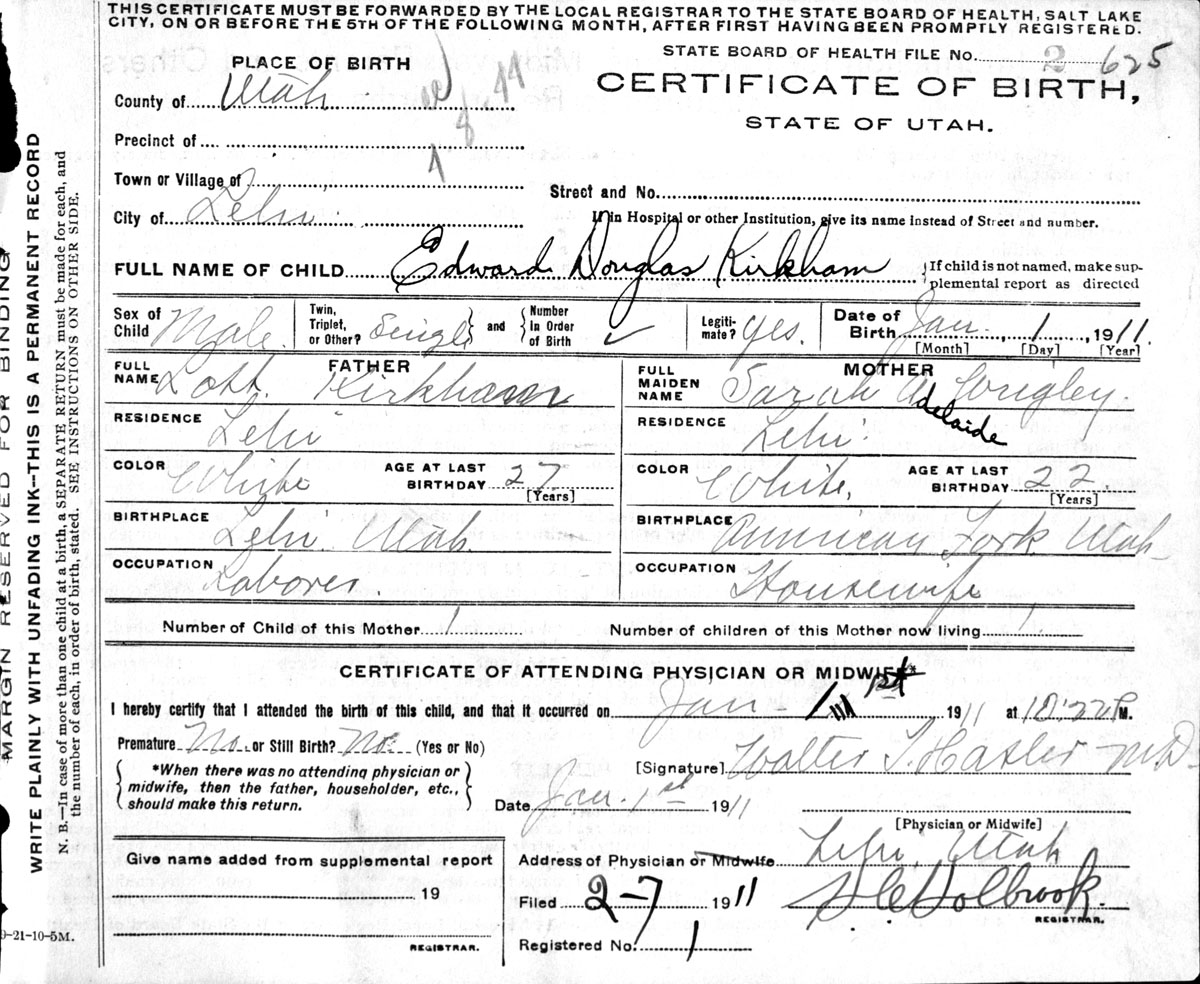 THIS CERTIFICATE MUST BE FORWARDED BY THE LOCAL REGISTRAR TO THE STATE BOARD OF HEALTH, SALT LAKE
CITY, ON OR BEFORE THE 5TH OF THE FOLLOWING MONTH, AFTER FIRST HAVING BEEN PROMPTLY REGISTERED.
STATE BOARD OF HEALTH FILE No. 2 625
PLACE OF BIRTH
CERTIFICATE OF BIRTH,
STATE OF UTAH.
County of Utah
Precinct of
Town or Village of
Street and No.
City of Lehi
If in Hospital or other Institution, give its name instead of Street and number.
FULL NAME OF CHILD Edward Douglas Kirkham
{If child is not named, make supplemental report as directed
Sex of Child Male. Twin, Triplet, or Other? Single and Number in Order of Birth ✓ Legitimate? Yes. Date of Birth Jan. 1, 1911.
[Month] [Day] [Year]
FATHER
MOTHER
FULL NAME Lott Kirkham
FULL MAIDEN NAME Sarah Adelaide
RESIDENCE Lehi
RESIDENCE Lehi
COLOR White AGE AT LAST BIRTHDAY 27 [Years]
COLOR White, AGE AT LAST BIRTHDAY 22 [Years]
BIRTHPLACE Lehi Utah
BIRTHPLACE American Fork Utah
OCCUPATION Laborer.
OCCUPATION Housewife
Number of Child of this Mother 1
Number of children of this Mother now living 1
CERTIFICATE OF ATTENDING PHYSICIAN OR MIDWIFE*
I hereby certify that I attended the birth of this child, and that it occurred on Jan 1st 1911 at 10:22 P. M.
Premature No. or Still Birth? No. (Yes or No)
[Signature] Walter T. Hasler M.D.
{*When there was no attending physician or
midwife, then the father, householder, etc.,
should make this return.}
Date Jan. 1st 1911
[Physician or Midwife]
Give name added from supplemental report
19
REGISTRAR.
Address of Physician or Midwife Lehi, Utah
Filed 2-7 1911
Holbrook.
REGISTRAR.
Registered No. 1
9-21-10-5M.
MARGIN RESERVED FOR BINDING
WRITE PLAINLY WITH UNFADING INK--THIS IS A PERMANENT RECORD
N. B.—In case of more than one child at a birth, a SEPARATE RETURN must be made for each, and
the number of each, in order of birth, stated. SEE INSTRUCTIONS ON OTHER SIDE.